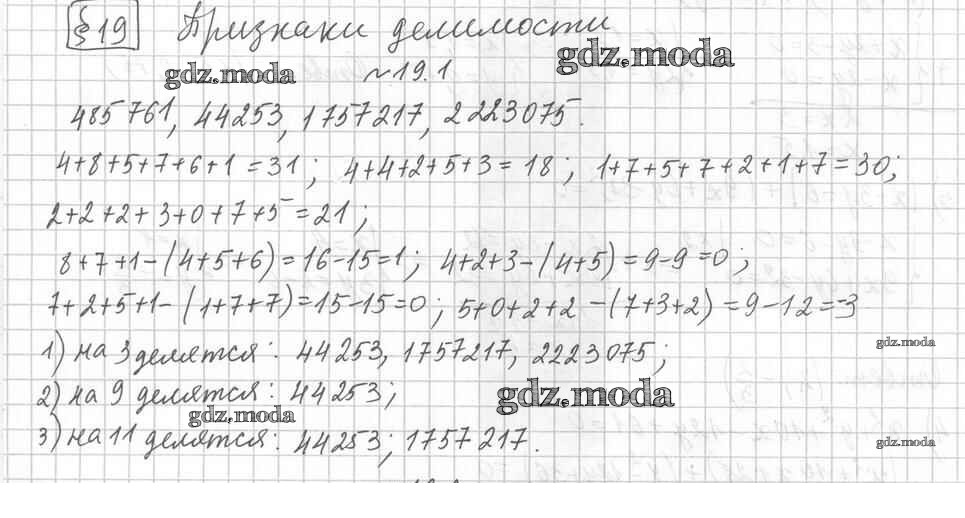 §19 Признаки делимости
gdz.moda
gdz.moda
№19.1
485761, 44253, 1757217, 2223075.
4+8+5+7+6+1=31; 4+4+2+5+3=18; 1+7+5+7+2+1+7=30;
2+2+2+3+0+7+5=21;
8+7+1-(4+5+6)=16-15=1; 4+2+3-(4+5)=9-9=0;
7+2+5+1-(1+7+7)=15-15=0; 5+0+2+2-(7+3+2)=9-12=-3
1) на 3 делятся: 44253, 1757217, 2223075;
gdz.moda
2) на 9 делятся: 44253;
gdz.moda
gdz.moda
3) на 11 делятся: 44253; 1757217.
gdz.moda